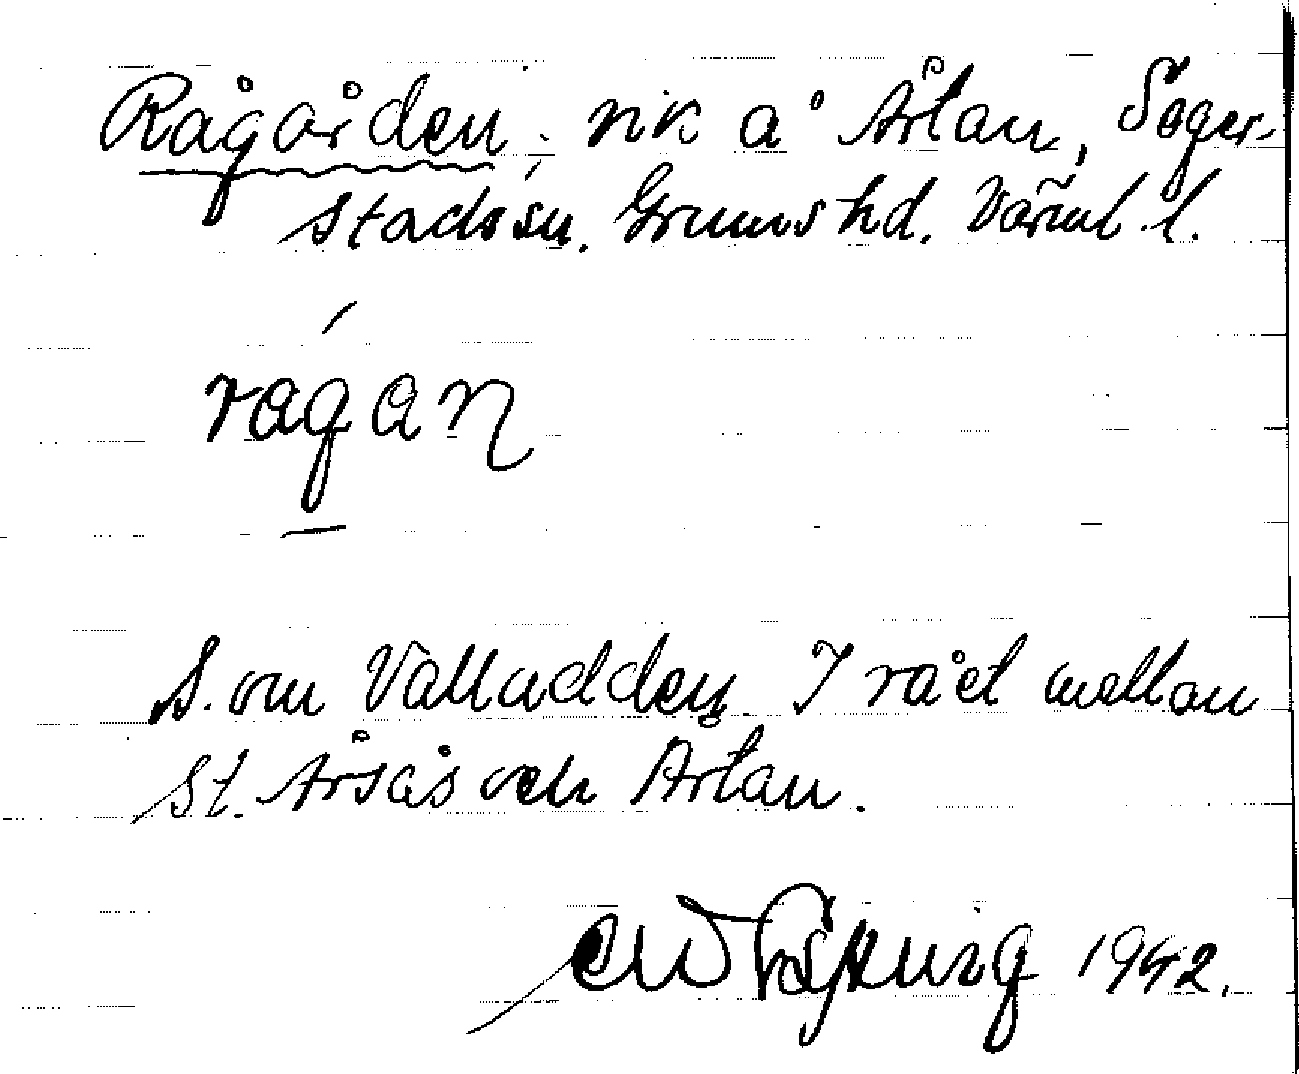 Rågården, vik å Årtan, Seger-
stads sn. Grums hd. Värml. l.
rågan
S. om Valludden I rået mellan
St. Årsås och Årtan.
1942.